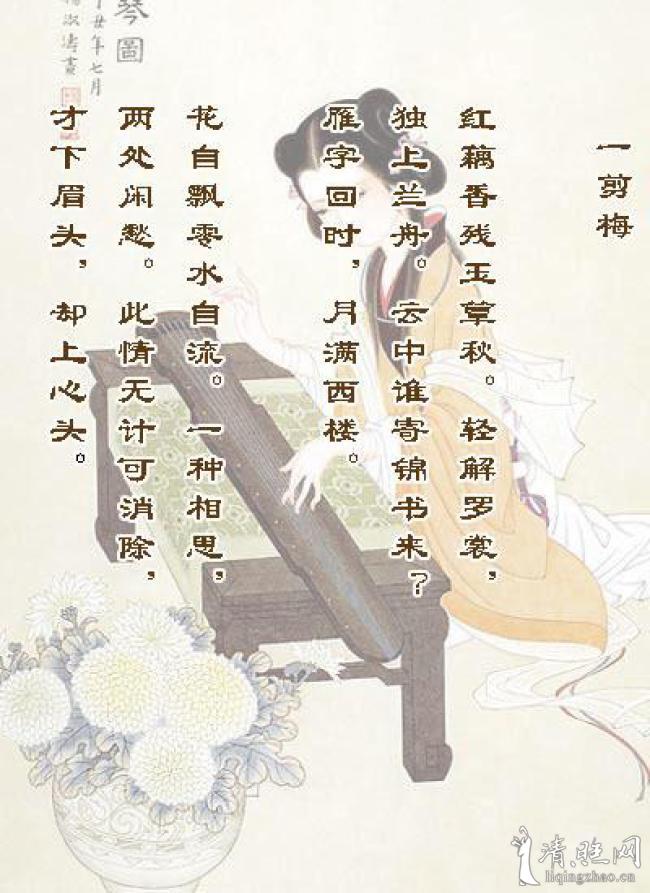 一剪梅
红藕香残玉草秋。轻解罗裳，
独上兰舟。云中谁寄锦书来？
雁字回时，月满西楼。
花自飘零水自流。一种相思，
两处闲愁。此情无计可消除，
才下眉头，却上心头。
琴圖
丑年七月
淑涛畫
清照网
liqingzhao.cn